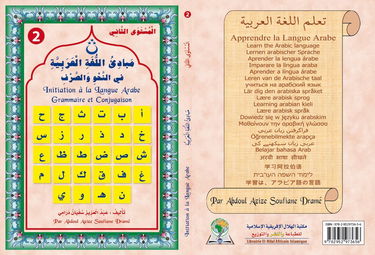 المستوى الثاني
2
ن
مبادئ اللغة العربية
في النحو والصرف
Initiation à la Langue Arabe
Grammaire et Conjugaison
أ ب ت ث ج ح
خ د ذ ر ز س
ش ص ض ط ظ ع
غ ف ق ك ل م
ن ه و ي
تأليف: عبد العزيز سفيان درامي
2
Initiation à la Langue Arabe
تعلم اللغة العربية
Apprendre la Langue Arabe
Learn the Arabic language
Lernen arabischer Sprache
Aprender la lengua árabe
Imparare la lingua araba
Aprender a língua árabe
Leren van de Arabische taal
учиться на арабский язык
Lär dig den arabiska språket
Lære arabisk sprog
Learning arabian kieli
Lære arabisk språk
Dowiedz się w języku arabskim
Μαθαίνουν την αραβική γλώσσα
Öğrenebilmekte arapça
Belajar bahasa Arab
अरबी भाषा सीखें
学习阿拉伯语
学習は、アラビア語の言語
Par Abdoul Azize Soufiane Dramé
مكتبة الهلال الإفريقية الإسلامية
للطباعة والنشر والتوزيع
Librairie El Hilal Africain Islamique